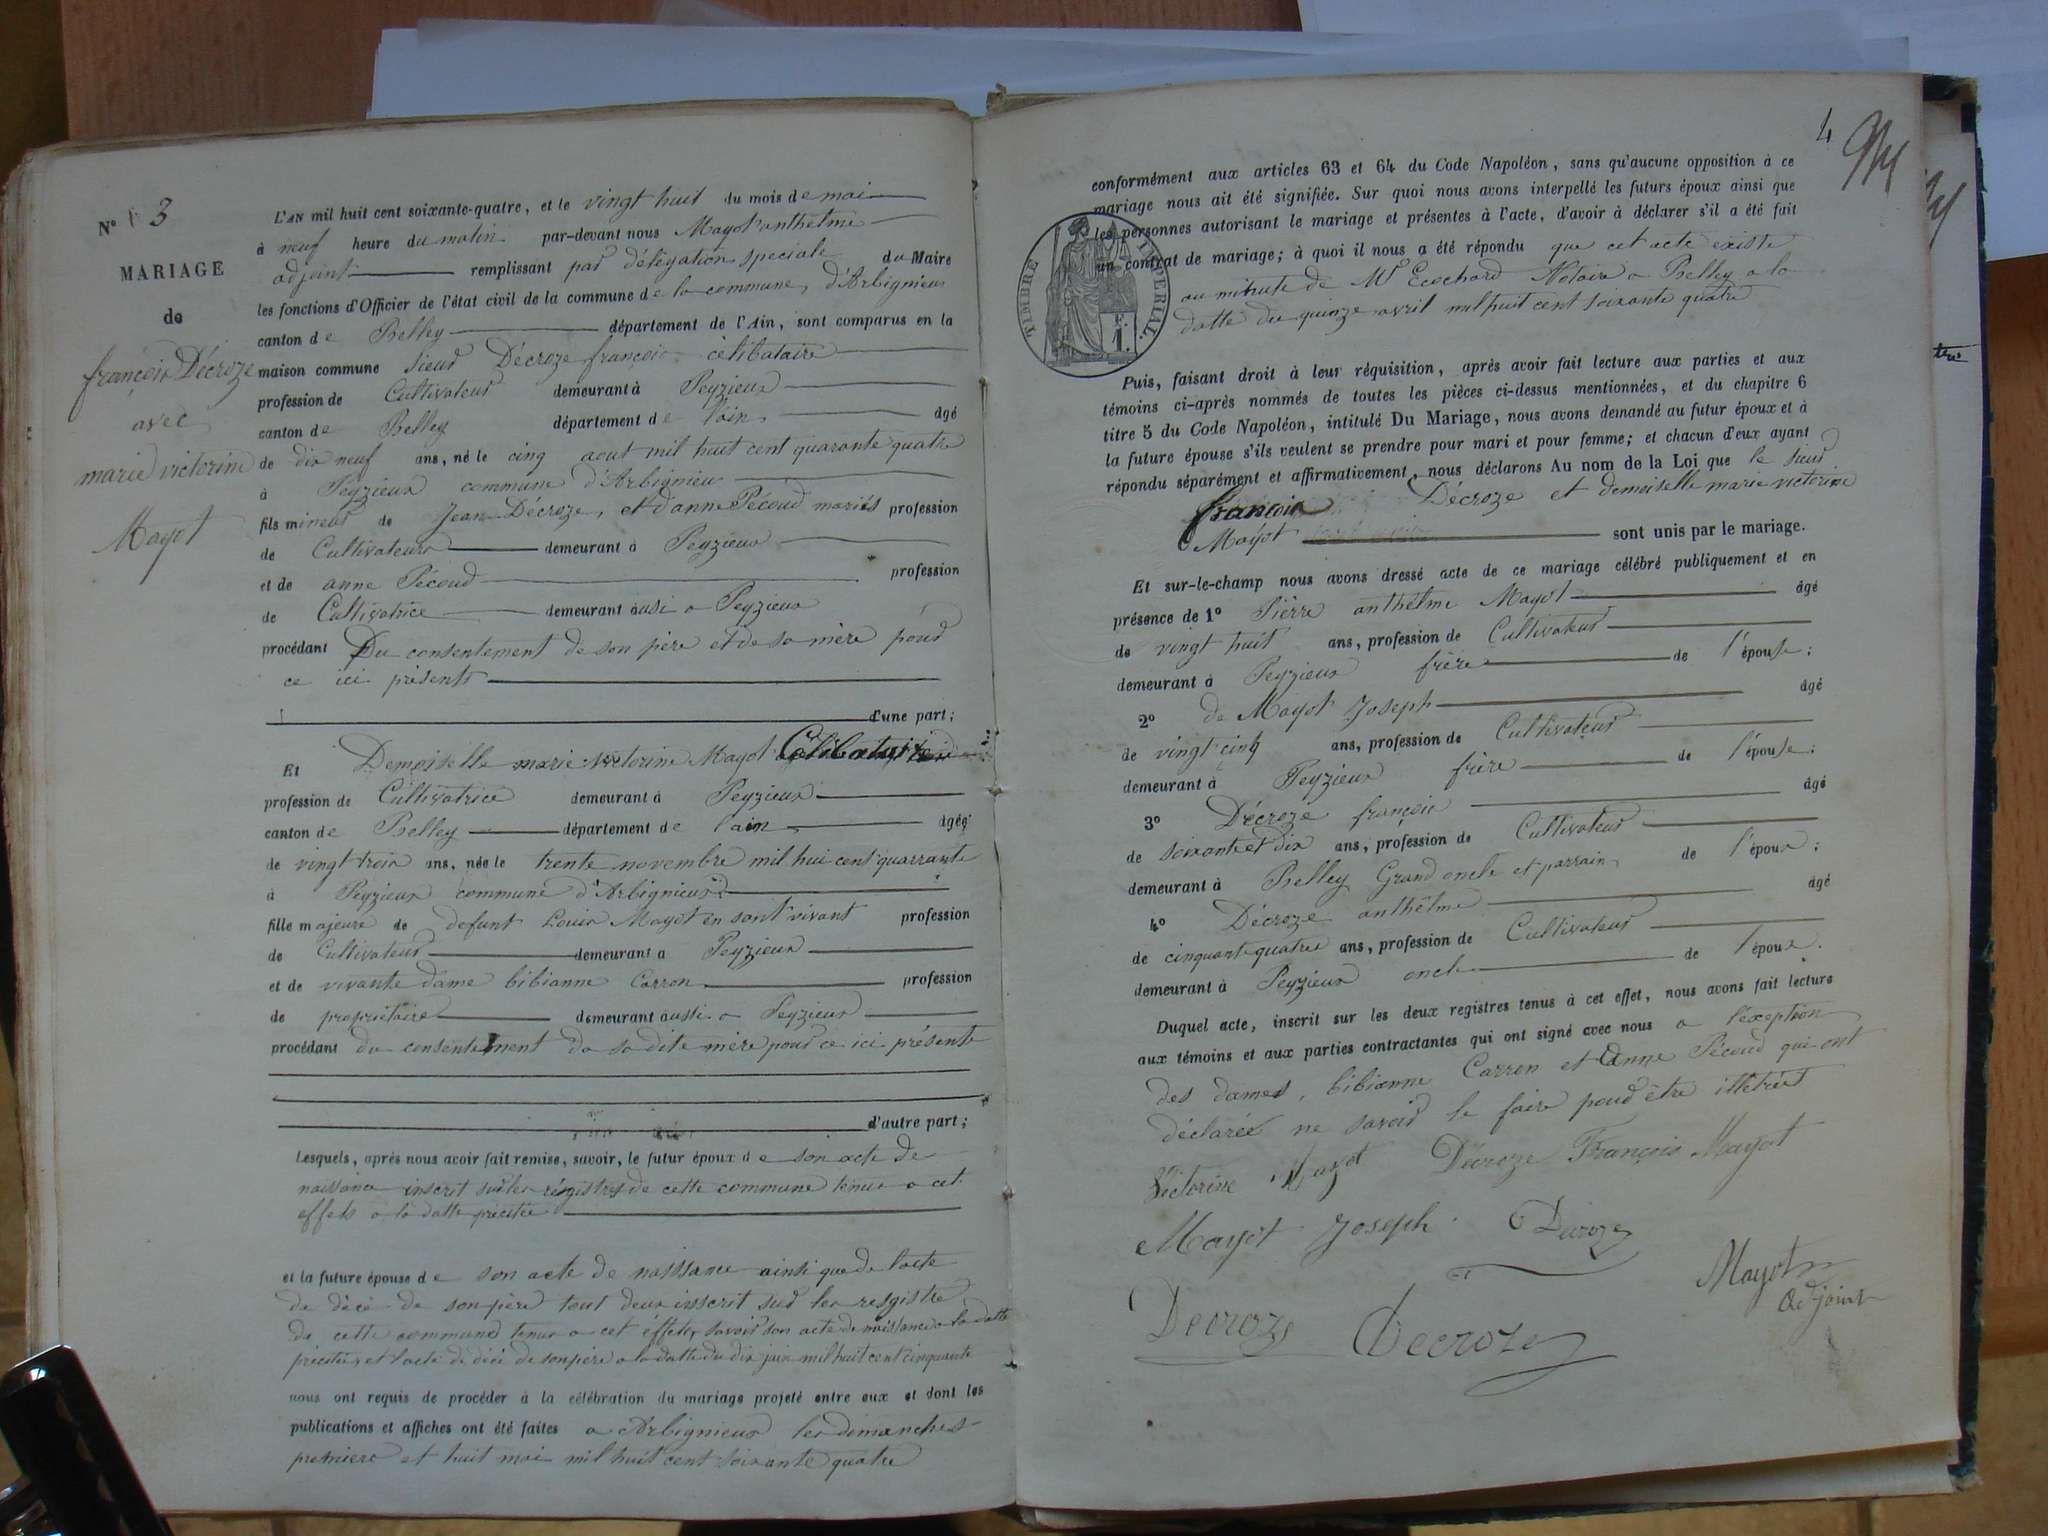 N° 3
MARIAGE
de
françois Décroze
avec
marie victorine
Mayot
L'AN mil huit cent soixante-quatre, et le vingt huit du mois de mai
à neuf heure du matin par-devant nous Mayot anthelme
adjoint remplissant par délégation speciale du Maire
les fonctions d'Officier de l'état civil de la commune de la commune, d'Arbignieux
canton de Belley département de l'Ain, sont comparus en la
maison commune sieur Décroze françois célibataire
profession de Cultivateur demeurant à Peyzieux
canton de Belley département de l'ain âgé
de dix neuf ans, né le cinq aout mil huit cent quarante quatre
à Peyzieux commune d'Arbignieu
fils mineur de Jean Décroze, et d'anne Pécoud mariés profession
de Cultivateurs demeurant à Peyzieux
et de anne Pécoud profession
de Cultivatrice demeurant ausi a Peyzieux
procédant Du consentement de son père et de sa mère pour
ce ici présents
d'une part;
Et Demoiselle marie victorine Mayot Célibataire
profession de Cultivatrice demeurant à Peyzieux
canton de Belley département de l'ain âgée
de vingt trois ans, née le trente novembre mil hui cent quarrante
à Peyzieux commune d'Arbignieux
fille majeure de defunt Louis Mayot en sont vivant profession
de Cultivateur demeurant a Peyzieux
et de vivante dame bibianne Carron profession
de propriétaire demeurant aussi a Peyzieux
procédant du consentement da sa dite mère pour ce ici présente
d'autre part;
Lesquels, après nous avoir fait remise, savoir, le futur époux de son acte de
naissance inscrit sur les régistres de cette commune tenue a cet
effets a la datte précitée
et la future épouse de son acte de naissance ainsi que de l'acte
de décé de son père tout deux inscrit sur les resgistre
de cette commune tenue a cet éffets, savoir son acte de naissance a la datte
précitée, et l'acte de décé de son père a la datte du dix juin mil huit cent cinquante
nous ont requis de procéder à la célébration du mariage projeté entre eux et dont les
publications et affiches ont été faites a Arbignieux les dimanches
premiere et huit mai mil huit cent soixante quatre
4
conformément aux articles 63 et 64 du Code Napoléon, sans qu'aucune opposition à ce
mariage nous ait été signifiée. Sur quoi nous avons interpellé les futurs époux ainsi que
les personnes autorisant le mariage et présentes à l'acte, d'avoir à déclarer s'il a été fait
un contrat de mariage; à quoi il nous a été répondu que cet acte existe
au minute de Mr Ecochard Notaire a Belley a la
datte du quinze avril mil huit cent soixante quatre
TIMBRE IMPERIAL
F. 1
Puis, faisant droit à leur réquisition, après avoir fait lecture aux parties et aux
témoins ci-après nommés de toutes les pièces ci-dessus mentionnées, et du chapitre 6
titre 5 du Code Napoléon, intitulé Du Mariage, nous avons demandé au futur époux et à
la future épouse s'ils veulent se prendre pour mari et pour femme; et chacun d'eux ayant
répondu séparément et affirmativement, nous déclarons Au nom de la Loi que le sieur
françois Décroze et demoiselle marie victorine
Mayot sont unis par le mariage.
Et sur-le-champ nous avons dressé acte de ce mariage célébré publiquement et en
présence de 1° Pièrre anthélme Mayot âgé
de vingt huit ans, profession de Cultivateur
demeurant à Peyzieux frère de l'épouse;
2° de Mayot Joseph âgé
de vingt cinq ans, profession de Cultivateur
demeurant à Peyzieux frère de l'épouse;
3° Décroze françois âgé
de soixante et dix ans, profession de Cultivateur
demeurant à Belley Grand oncle et parrain de l'époux;
4° Décroze anthélme âgé
de cinquante quatre ans, profession de Cultivateur
demeurant à Peyzieux oncle de l'époux.
Duquel acte, inscrit sur les deux registres tenus à cet effet, nous avons fait lecture
aux témoins et aux parties contractantes qui ont signé avec nous a l'éxeption
des dames, bibianne Carron et anne Pécoud qui ont
déclarée ne savoir le faire pour être illetrées
Victorine Mayot Décroze François Mayot
Mayot Joseph Décroze
Decroze Decroze
Mayot
adjoint